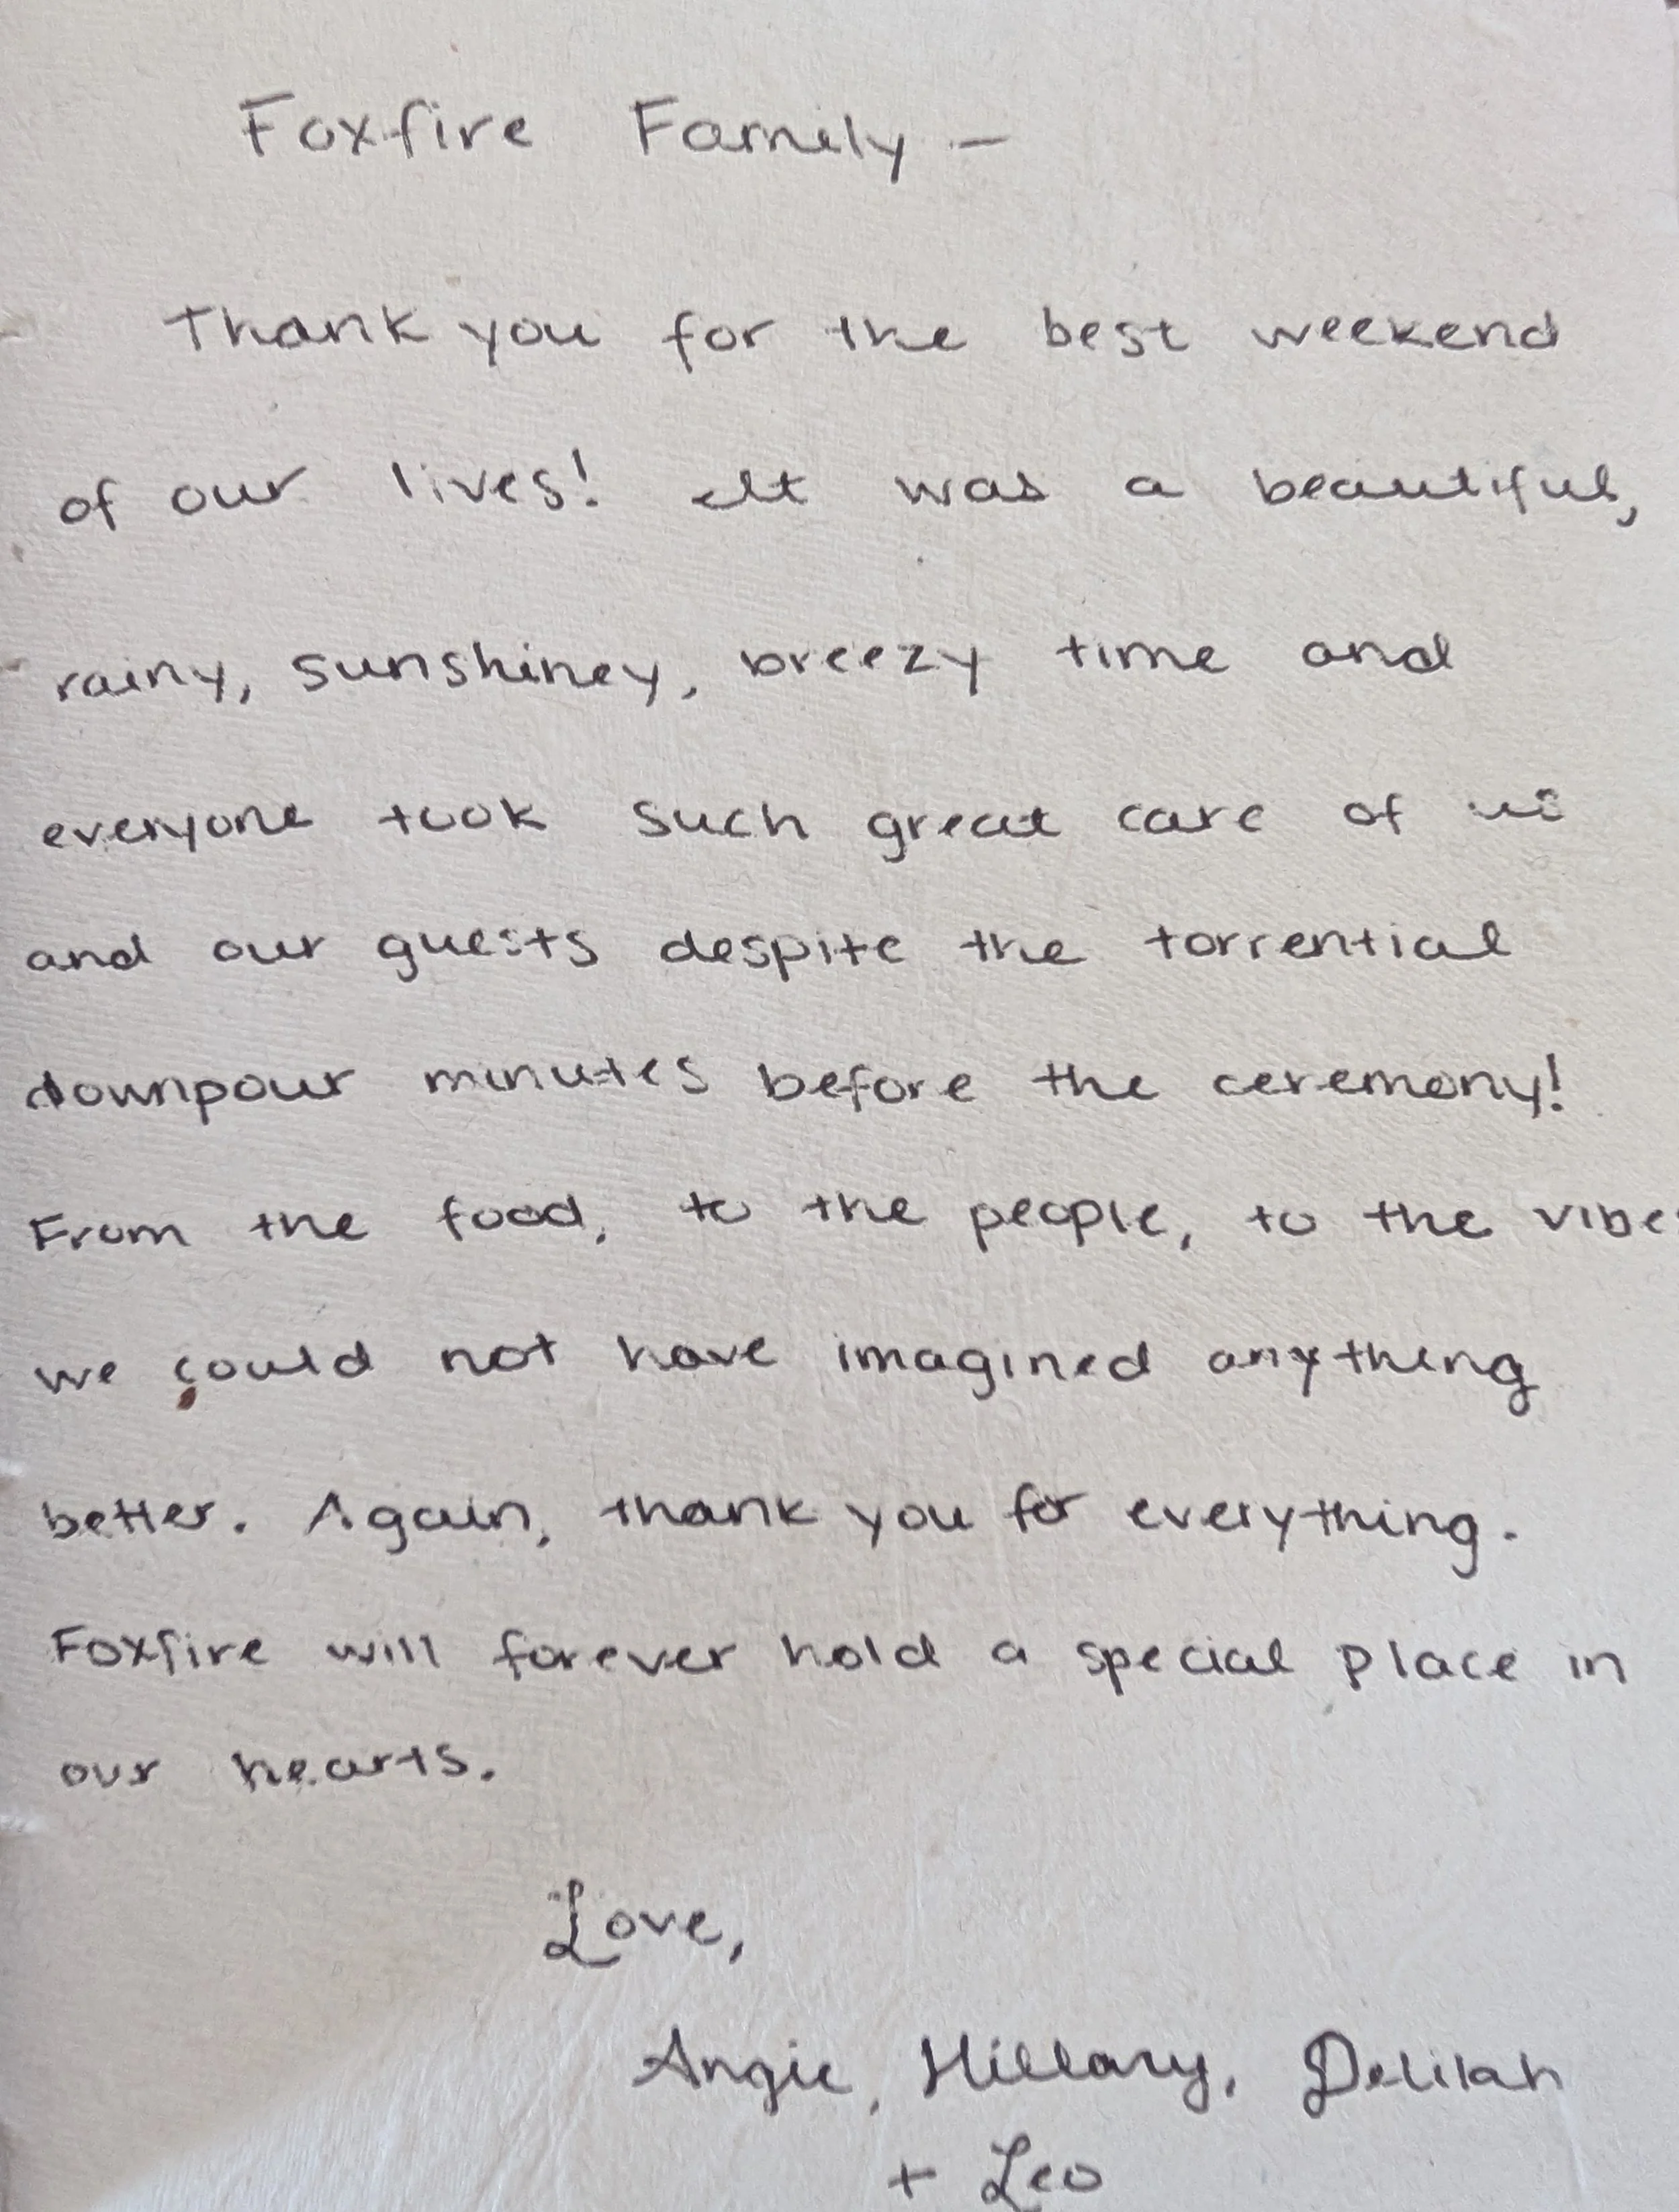 Foxfire Family –
Thank you for the best weekend
of our lives! It was a beautiful,
rainy, sunshiney, breezy time and
everyone took such great care of us
and our guests despite the torrential
downpour minutes before the ceremony!
From the food, to the people, to the vibes
we could not have imagined anything
better. Again, thank you for everything.
Foxfire will forever hold a special place in
our hearts.
Love,
Angie, Hillary, Delilah
+ Leo